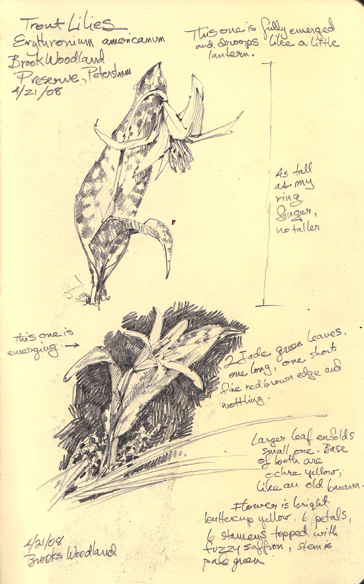 Trout Lilies
Erythronium americanum
Brook Woodland
Preserve, Petersham
4/21/08
This one is fully emerged
and droops like a little
lantern.
As tall
as my
ring
finger,
no taller
This one is
emerging →
2 Jade green leaves,
one long, one short
fine red brown edge and
mottling.
Larger leaf enfolds
small one. Base
of both are
ochre yellow,
like an old banana.
Flower is bright
buttercup yellow. 6 petals,
6 stamens topped with
fuzzy saffron, stem is
pale green
4/21/08
Brooks Woodland